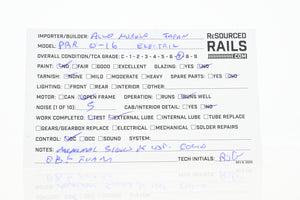 RESOURCED
RAILS
.COM
IMPORTER/BUILDER: JAPAN
MODEL: PRR O-16 ELECTRIC
OVERALL CONDITION/TCA GRADE: C - 1 - 2 - 3 - 4 - 5 - 6 - 7 - 8 - 9
PAINT: NO FAIR GOOD EXCELLENT GLAZING: YES NO
TARNISH: NO MILD MODERATE HEAVY SPARE PARTS: YES NO
LIGHTING: FRONT REAR INTERIOR OTHER:
MOTOR: CAN OPEN FRAME OPERATION: RUNS RUNS WELL
NOISE (1 OF 10) 5 CAB/INTERIOR DETAIL: YES NO
WORK COMPLETED: TEST EXTERNAL LUBE INTERNAL LUBE TUBE REPLACE
GEARS/GEARBOX REPLACE ELECTRICAL MECHANICAL SOLDER REPAIRS
CONTROL: DC DCC SOUND SYSTEM:
NOTES:
FOAM TECH INITIALS: